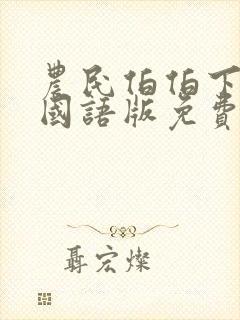 農民伯伯下
國語版免費
聶宏燦